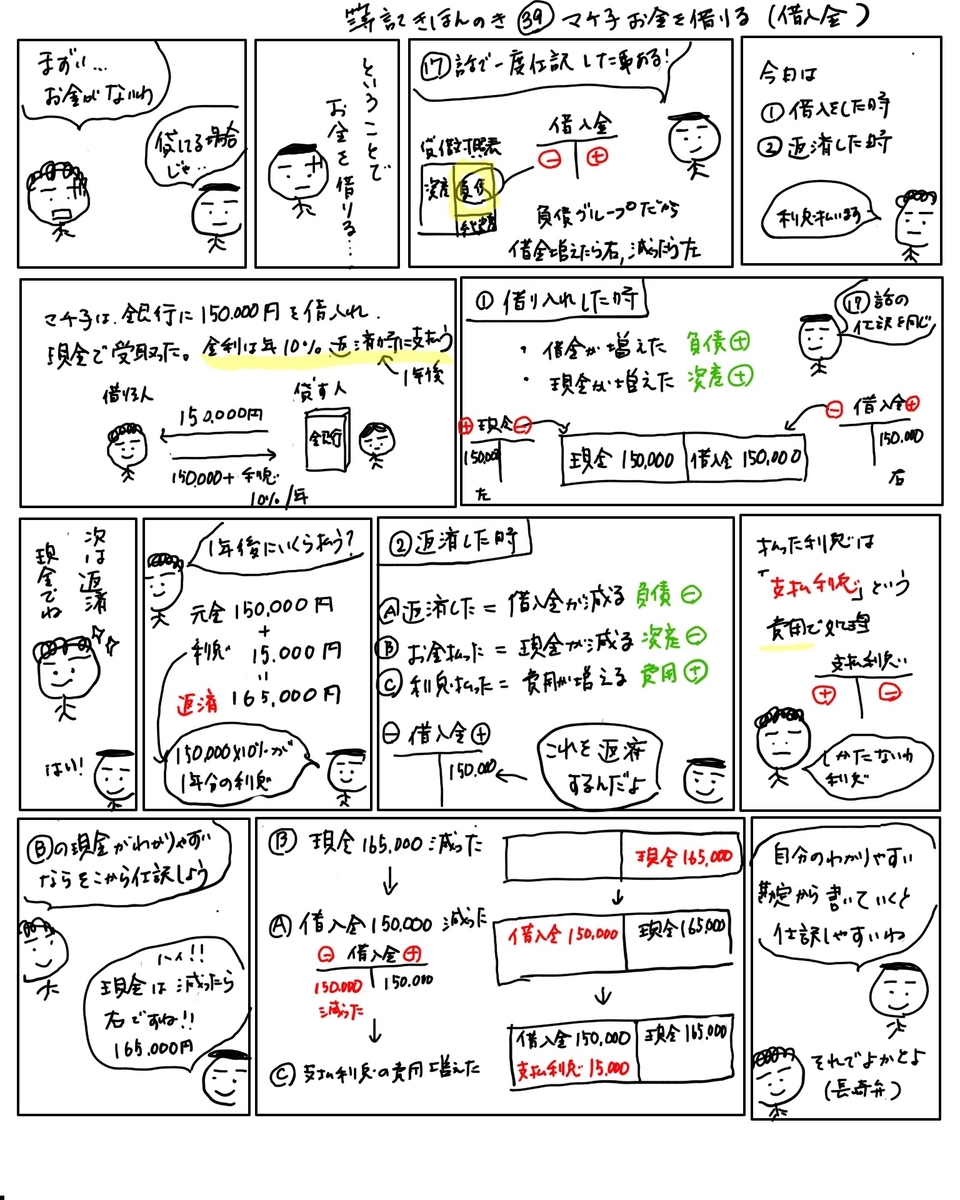 簿記きほんのき㊴マチ子お金を借りる(借入金)
まずい…
お金がないわ
貸してる場合
じゃ…
ということで
お金を借りる…
⑰話で一度仕訳した事ある!
借入金
⊖ ⊕
貸借対照表
資産
負債
純資産
負債グループだから
借金増えたら右,減ったら左
今日は
①借入をした時
②返済した時
利息払います
マチ子は、銀行に150.000円を借入れ
現金で受取った。金利は年10%。返済時に支払う
1年後
借りる人
150.000円
貸す人
銀行
150.000+利息
10%/年
①借り入れした時
⑰話の
仕訳と同じ
・借金が増えた 負債⊕
・現金が増えた 資産⊕
⊕現金⊖
150,000
左
現金 150,000
借入金 150,000
⊖借入金⊕
150.000
右
次は返済
現金でね
はい!
1年後にいくら払う?
元金 150,000円
+
利息 15.000円
"
返済 165,000円
150,000×10%が
1年分の利息
②返済した時
Ⓐ返済した=借入金が減る 負債⊖
Ⓑお金払った=現金が減る 資産⊖
Ⓒ利息払った=費用が増える 費用⊕
⊖借入金⊕
150.000
これを返済
するんだよ
払った利息は
「支払利息」という
費用で処理
支払利息
⊕ ⊖
しかたないわ
利息
Ⓑの現金がわかりやすい
ならそこから仕訳しよう
ハイ!!
現金は減ったら
右ですね!!
165.000円
Ⓑ現金165,000減った
↓
Ⓐ借入金150,000減った
⊖借入金⊕
150.000
150.000
減った
↓
Ⓒ支払利息の費用増えた
現金165,000
↓
借入金 150,000
現金165,000
↓
借入金150,000
現金165.000
支払利息 15,000
自分のわかりやすい
勘定から書いていくと
仕訳しやすいわね
それでよかとよ
(長崎弁)